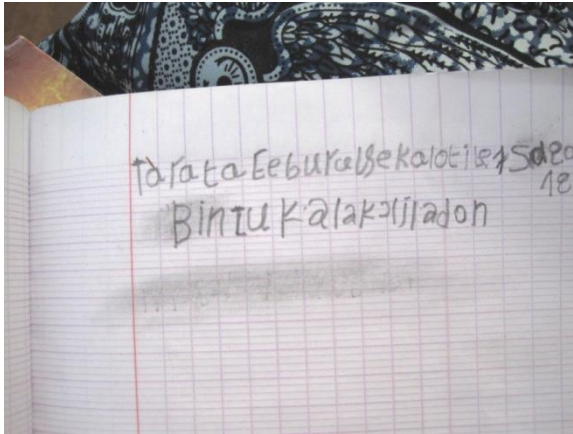 tarata Eeburalsekalotile15de20
18
Bintu kalakalijladon